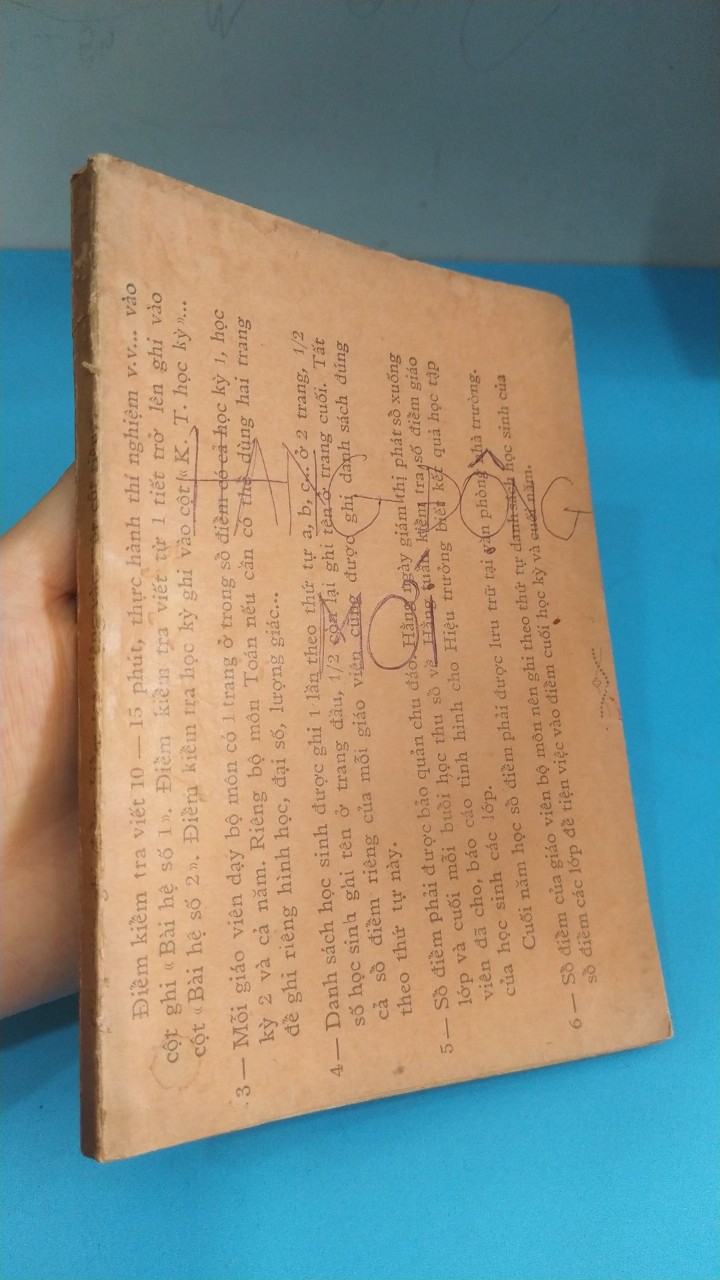 Điểm kiểm tra viết 10 — 15 phút, thực hành thí nghiệm v.v... vào
cột ghi « Bài hệ số 1 ». Điểm kiểm tra viết từ 1 tiết trở lên ghi vào
cột « Bài hệ số 2 ». Điểm kiểm tra học kỳ ghi vào cột « K. T. học kỳ »...
3 — Mỗi giáo viên dạy bộ môn có 1 trang ở trong sổ điểm có cả học kỳ 1, học
kỳ 2 và cả năm. Riêng bộ môn Toán nếu cần có thể dùng hai trang
để ghi riêng hình học, đại số, lượng giác...
4 — Danh sách học sinh được ghi 1 lần theo thứ tự a, b, c... ở 2 trang, 1/2
số học sinh ghi tên ở trang đầu, 1/2 còn lại ghi tên ở trang cuối. Tất
cả sổ điểm riêng của mỗi giáo viên cũng được ghi danh sách đúng
theo thứ tự này.
5 — Sổ điểm phải được bảo quản chu đáo. Hằng ngày giám thị phát sổ xuống
lớp và cuối mỗi buổi học thu sổ về. Hằng tuần kiểm tra số điểm giáo
viên đã cho, báo cáo tình hình cho Hiệu trưởng biết kết quả học tập
của học sinh các lớp.
Cuối năm học sổ điểm phải được lưu trữ tại văn phòng nhà trường.
6 — Sổ điểm của giáo viên bộ môn nên ghi theo thứ tự danh sách học sinh của
sổ điểm các lớp để tiện việc vào điểm cuối học kỳ và cuối năm.